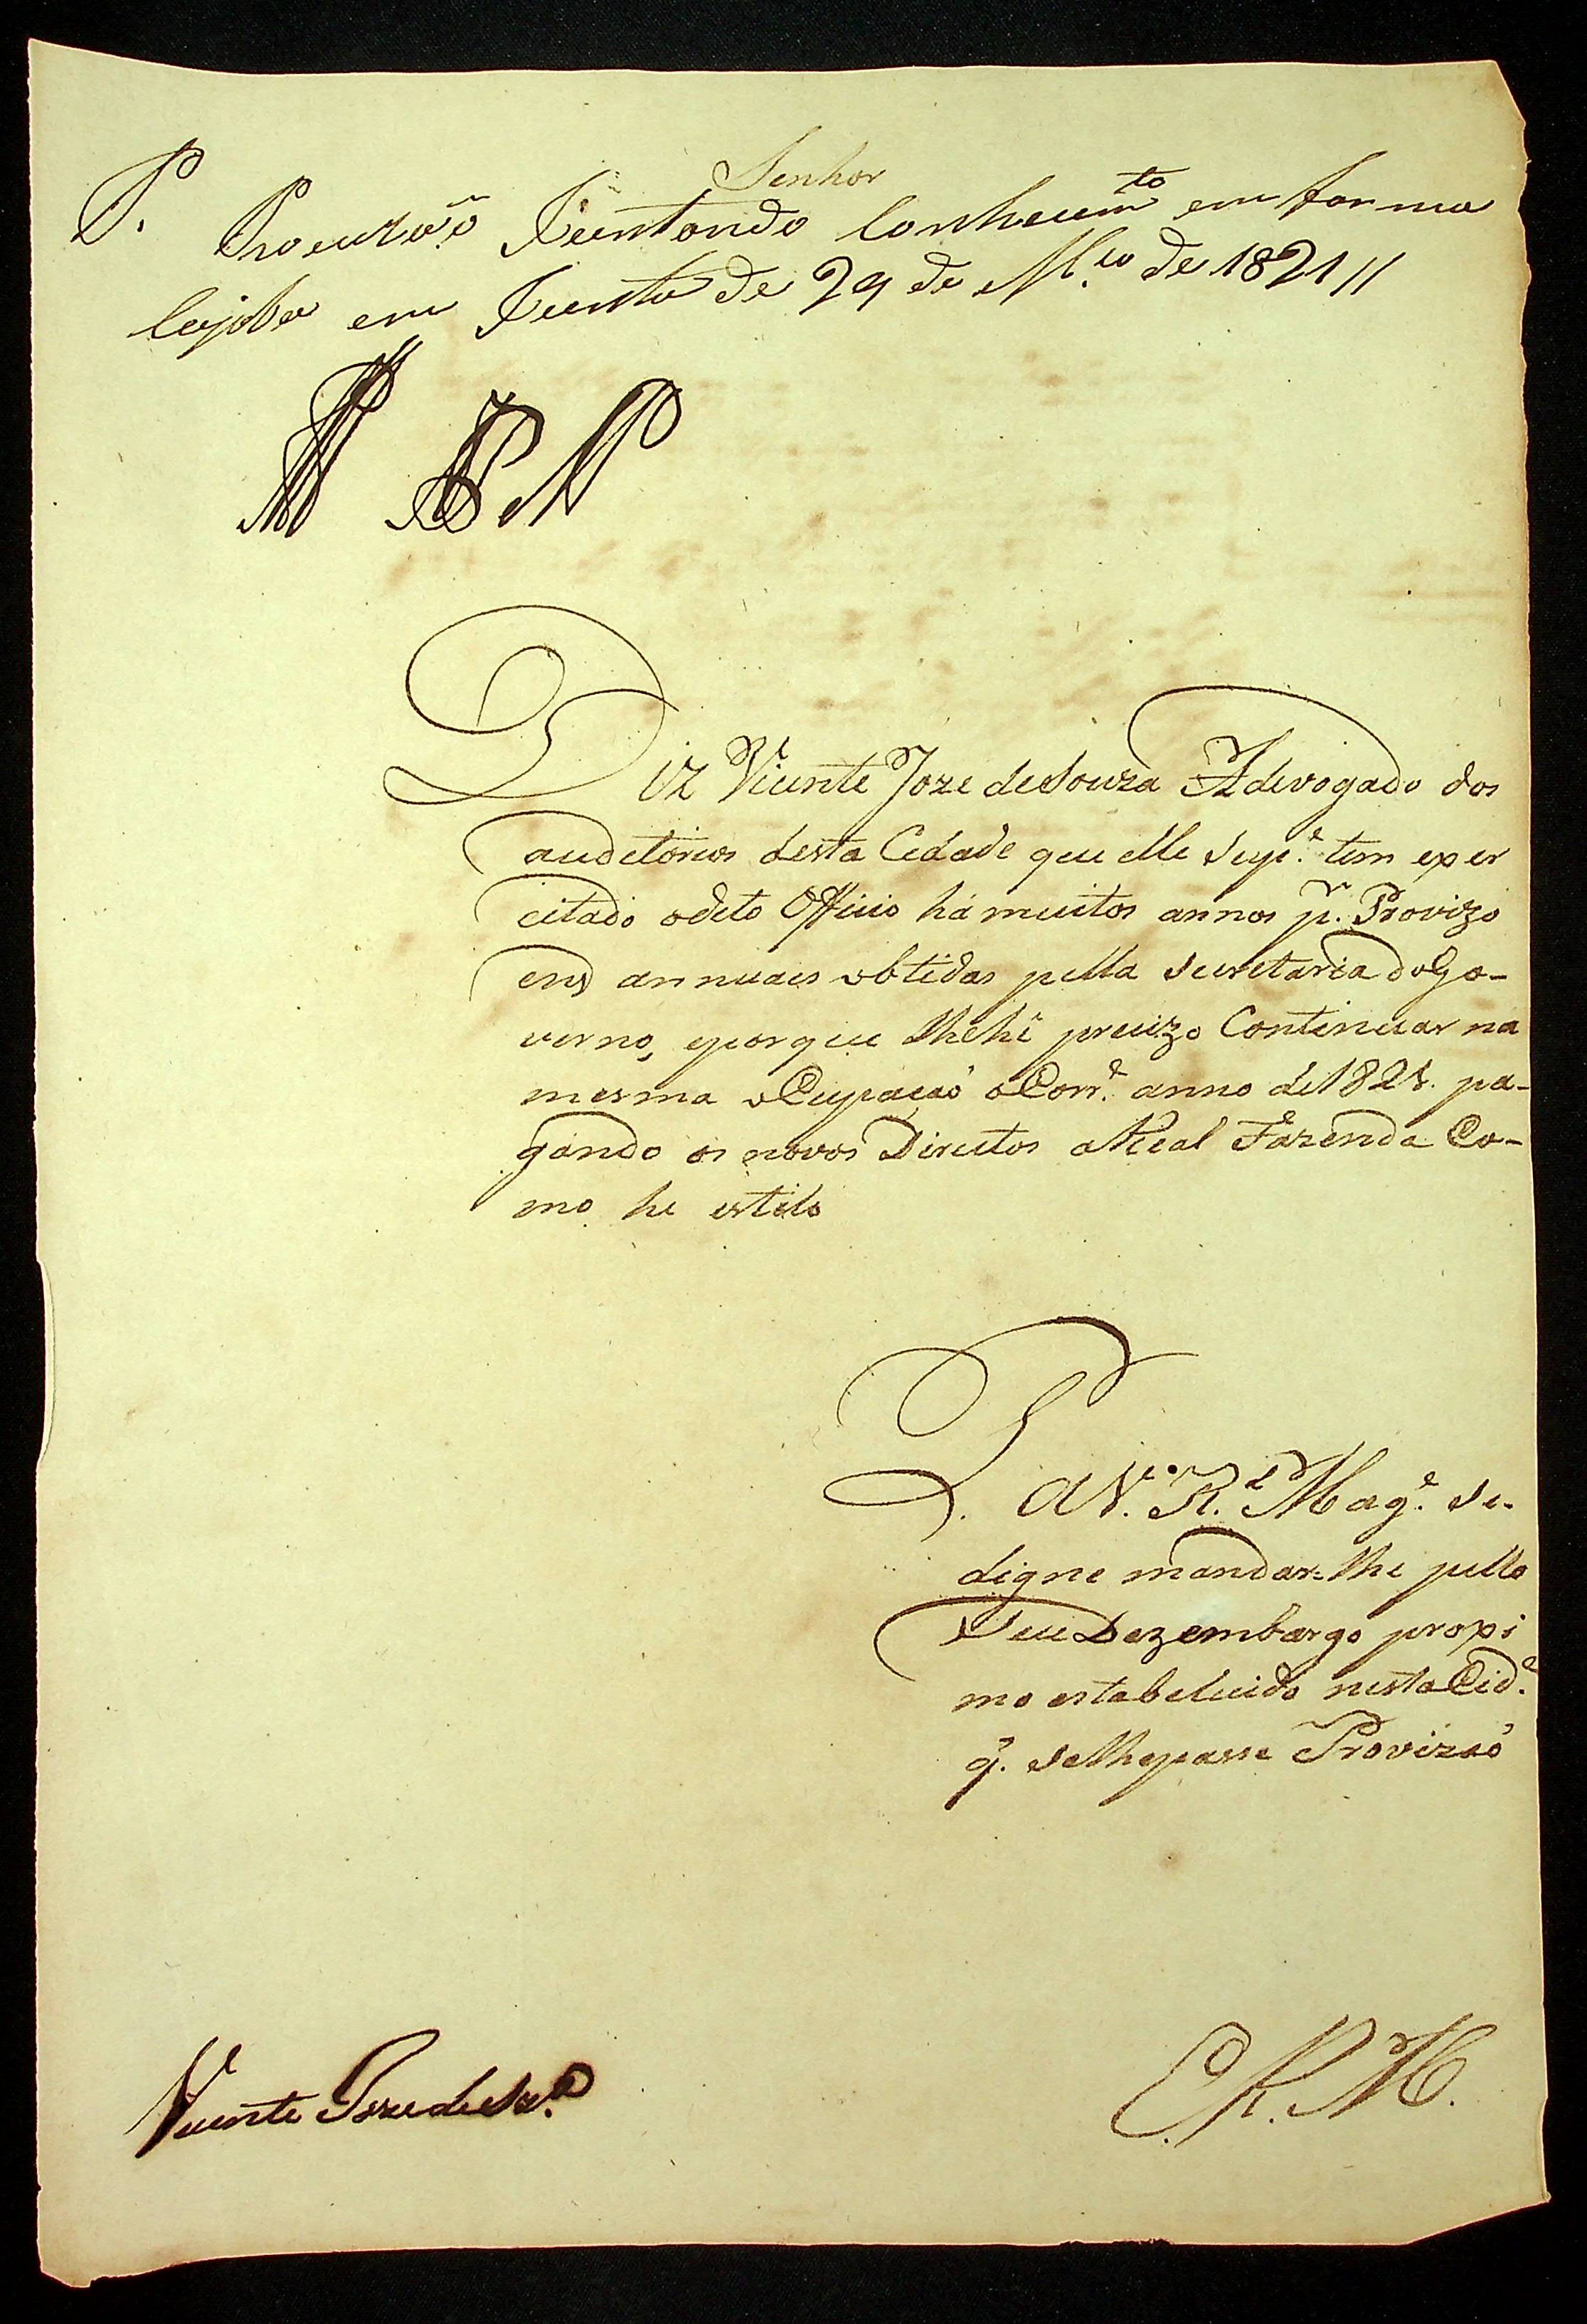 Senhor
P. Provizaõ Juntando Conhecim.to em forma
em Junta de 29 de M.ço de 1821 //
Diz Vicente Joze de Souza Adevogado dos
auditorios desta Cidade que elle Sup.e tem exer
citado o dito Officio há muitos annos p.r Provizo
ens annuaes obtidas pella Secretaria do Go-
verno, e porque lhe hé precizo Continuar na
mesma oCupaçaõ o Corr.e anno de 1821. pa-
gando os novos Direitos a Real Fazenda Co-
mo he estilo
P. a V. R. Mag.e se-
digne mandar-lhe pello
Seu Dezembargo proxi
mo estabelecido nesta Cid.e
q̃. se lhe passe Provizaõ
E. R. M.
Vicente Joze de Sz.a